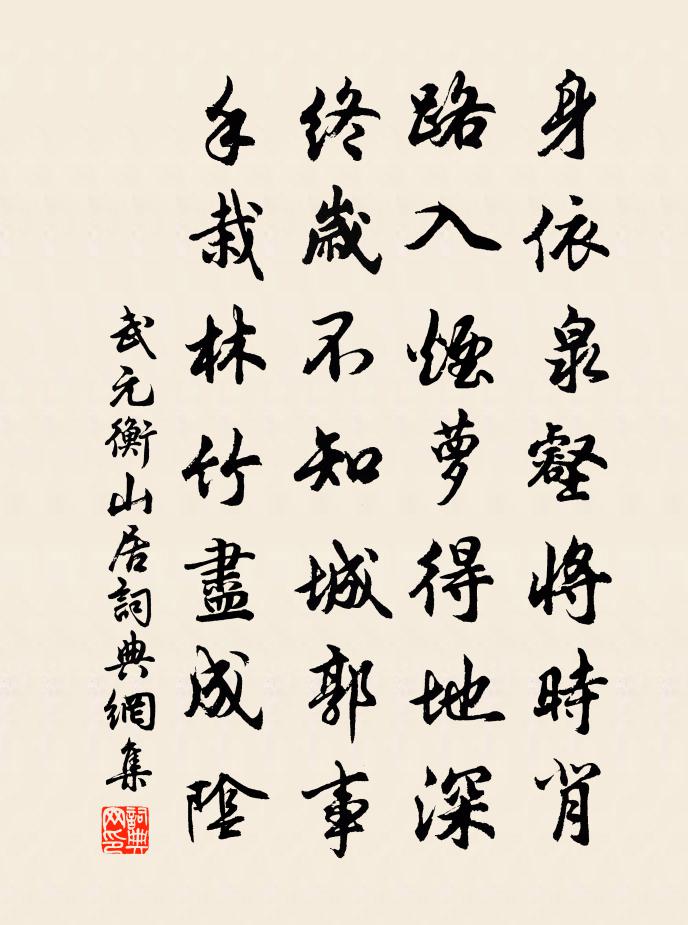 身依泉壑將時背
路入煙蘿得地深
終歲不知城郭事
手栽林竹盡成陰
武元衡山居詞典網集
詞典網印